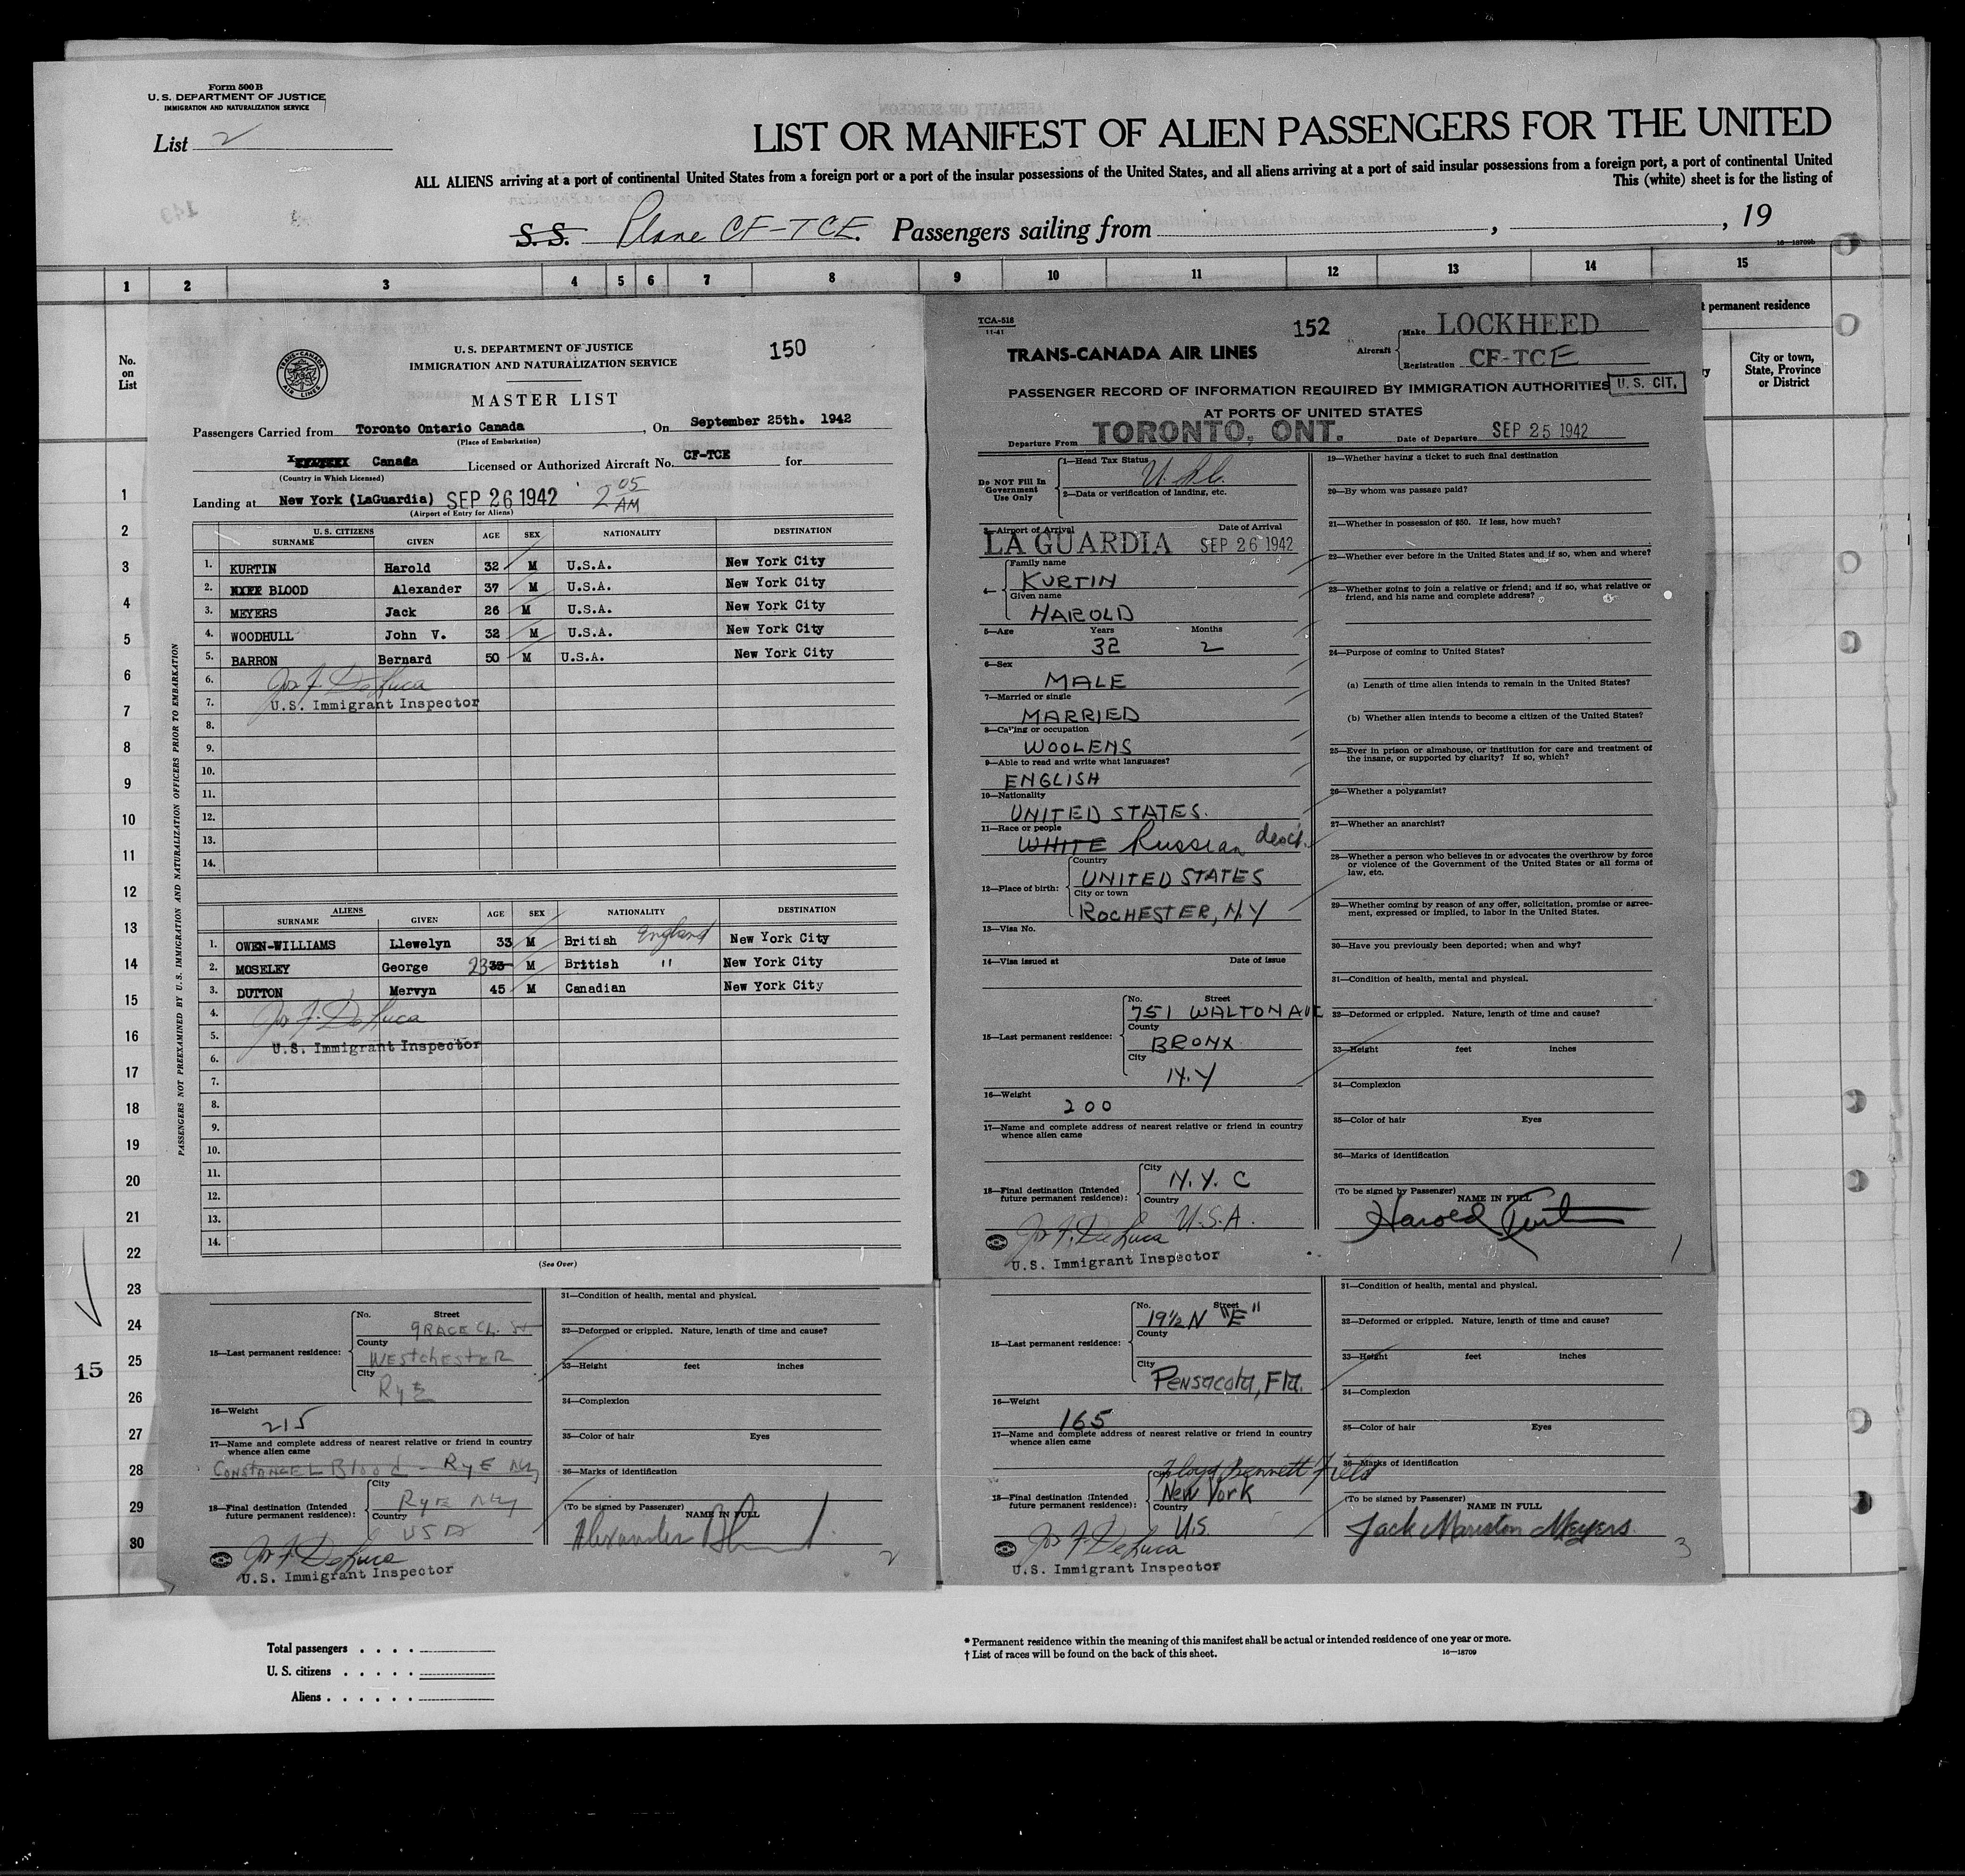 Form 500 B
U. S. DEPARTMENT OF JUSTICE
IMMIGRATION AND NATURALIZATION SERVICE
List 2
LIST OR MANIFEST OF ALIEN PASSENGERS FOR THE UNITED
ALL ALIENS arriving at a port of continental United States from a foreign port or a port of the insular possessions of the United States, and all aliens arriving at a port of said insular possessions from a foreign port, a port of continental United
This (white) sheet is for the listing of
S. S. Plane CF-TCE. Passengers sailing from , , 19
16-18709b
1 2 3 4 5 6 7 8 9 10 11 12 13 14 15
No. on List
permanent residence
City or town, State, Province or District
1
2
3
4
5
6
7
8
9
10
11
12
13
14
15
16
17
18
19
20
21
22
23
24
25
26
27
28
29
30
15
TRANS-CANADA AIR LINES
U. S. DEPARTMENT OF JUSTICE
IMMIGRATION AND NATURALIZATION SERVICE
150
MASTER LIST
Passengers Carried from Toronto Ontario Canada , On September 25th. 1942
(Place of Embarkation)
Canada Licensed or Authorized Aircraft No. CF-TCE for
(Country in Which Licensed)
Landing at New York (LaGuardia) SEP 26 1942 2 05 AM
(Airport of Entry for Aliens)
PASSENGERS NOT PREEXAMINED BY U. S. IMMIGRATION AND NATURALIZATION OFFICERS PRIOR TO EMBARKATION
U. S. CITIZENS
SURNAME GIVEN AGE SEX NATIONALITY DESTINATION
1. KURTIN Harold 32 M U.S.A. New York City
2. BLOOD Alexander 37 M U.S.A. New York City
3. MEYERS Jack 26 M U.S.A. New York City
4. WOODHULL John V. 32 M U.S.A. New York City
5. BARRON Bernard 50 M U.S.A. New York City
6. Jos F. DeLuca
7. U.S. Immigrant Inspector
8.
9.
10.
11.
12.
13.
14.
ALIENS
SURNAME GIVEN AGE SEX NATIONALITY DESTINATION
1. OWEN-WILLIAMS Llewelyn 33 M British England New York City
2. MOSELEY George 23 33 M British " New York City
3. DUTTON Mervyn 45 M Canadian New York City
4. Jos F. DeLuca
5. U.S. Immigrant Inspector
6.
7.
8.
9.
10.
11.
12.
13.
14.
(See Over)
TCA-518
11-41
152
Aircraft Make LOCKHEED
Registration CF-TCE
TRANS-CANADA AIR LINES
PASSENGER RECORD OF INFORMATION REQUIRED BY IMMIGRATION AUTHORITIES U. S. CIT.
AT PORTS OF UNITED STATES
Departure From TORONTO, ONT. Date of Departure SEP 25 1942
Do NOT Fill In Government Use Only
1—Head Tax Status
2—Data or verification of landing, etc.
3—Airport of Arrival Date of Arrival
LA GUARDIA SEP 26 1942
4 Family name
KURTIN
Given name
HAROLD
5—Age Years Months
32 2
6—Sex
MALE
7—Married or single
MARRIED
8—Calling or occupation
WOOLENS
9—Able to read and write what languages?
ENGLISH
10—Nationality
UNITED STATES.
11—Race or people
WHITE Russian desct.
12—Place of birth: Country
UNITED STATES
City or town
ROCHESTER, N.Y
13—Visa No.
14—Visa issued at Date of issue
15—Last permanent residence: No. Street
751 WALTON AVE
County
BRONX
City
N.Y
16—Weight
200
17—Name and complete address of nearest relative or friend in country whence alien came
18—Final destination (Intended future permanent residence): City
N.Y.C
Country
U.S.A.
Jos F. DeLuca
U.S. Immigrant Inspector
19—Whether having a ticket to such final destination
20—By whom was passage paid?
21—Whether in possession of $50. If less, how much?
22—Whether ever before in the United States and if so, when and where?
23—Whether going to join a relative or friend; and if so, what relative or friend, and his name and complete address?
24—Purpose of coming to United States?
(a) Length of time alien intends to remain in the United States?
(b) Whether alien intends to become a citizen of the United States?
25—Ever in prison or almshouse, or institution for care and treatment of the insane, or supported by charity? If so, which?
26—Whether a polygamist?
27—Whether an anarchist?
28—Whether a person who believes in or advocates the overthrow by force or violence of the Government of the United States or all forms of law, etc.
29—Whether coming by reason of any offer, solicitation, promise or agreement, expressed or implied, to labor in the United States.
30—Have you previously been deported; when and why?
31—Condition of health, mental and physical.
32—Deformed or crippled. Nature, length of time and cause?
33—Height feet inches
34—Complexion
35—Color of hair Eyes
36—Marks of identification
(To be signed by Passenger) NAME IN FULL
Harold Kurtin
1
15—Last permanent residence: No. Street
GRACE Ch. St
County
WESTCHESTER
City
RyE
16—Weight
215
17—Name and complete address of nearest relative or friend in country whence alien came
CONSTANCE L Blood - RyE NY
18—Final destination (Intended future permanent residence): City
RyE NY
Country
USA
Jos F. DeLuca
U.S. Immigrant Inspector
31—Condition of health, mental and physical.
32—Deformed or crippled. Nature, length of time and cause?
33—Height feet inches
34—Complexion
35—Color of hair Eyes
36—Marks of identification
(To be signed by Passenger) NAME IN FULL
Alexander Blood
2
15—Last permanent residence: No. Street
19½ N "E"
County
City
Pensacola, Fla.
16—Weight
165
17—Name and complete address of nearest relative or friend in country whence alien came
Floyd Bennett Field
18—Final destination (Intended future permanent residence): City
New York
Country
U.S.
Jos F. DeLuca
U.S. Immigrant Inspector
31—Condition of health, mental and physical.
32—Deformed or crippled. Nature, length of time and cause?
33—Height feet inches
34—Complexion
35—Color of hair Eyes
36—Marks of identification
(To be signed by Passenger) NAME IN FULL
Jack Marston Meyers
3
Total passengers . . . .
U. S. citizens . . . . .
Aliens . . . . . .
* Permanent residence within the meaning of this manifest shall be actual or intended residence of one year or more.
† List of races will be found on the back of this sheet.
16—18709